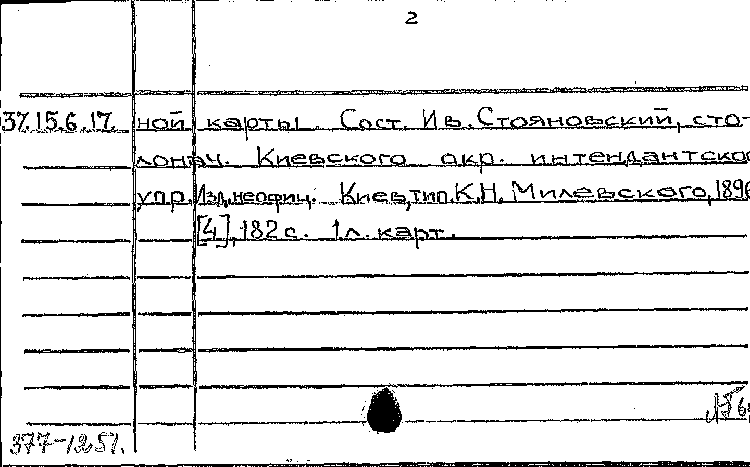 2
37.15.6.17. ной карты. Сост. Ив. Стояновский, сто-
лонач. Киевского окр. интендантско
упр. Изд. неофиц. Киев, тип. К.Н. Милевского, 1896
[4], 182 с. 1 л. карт.
377-1251.